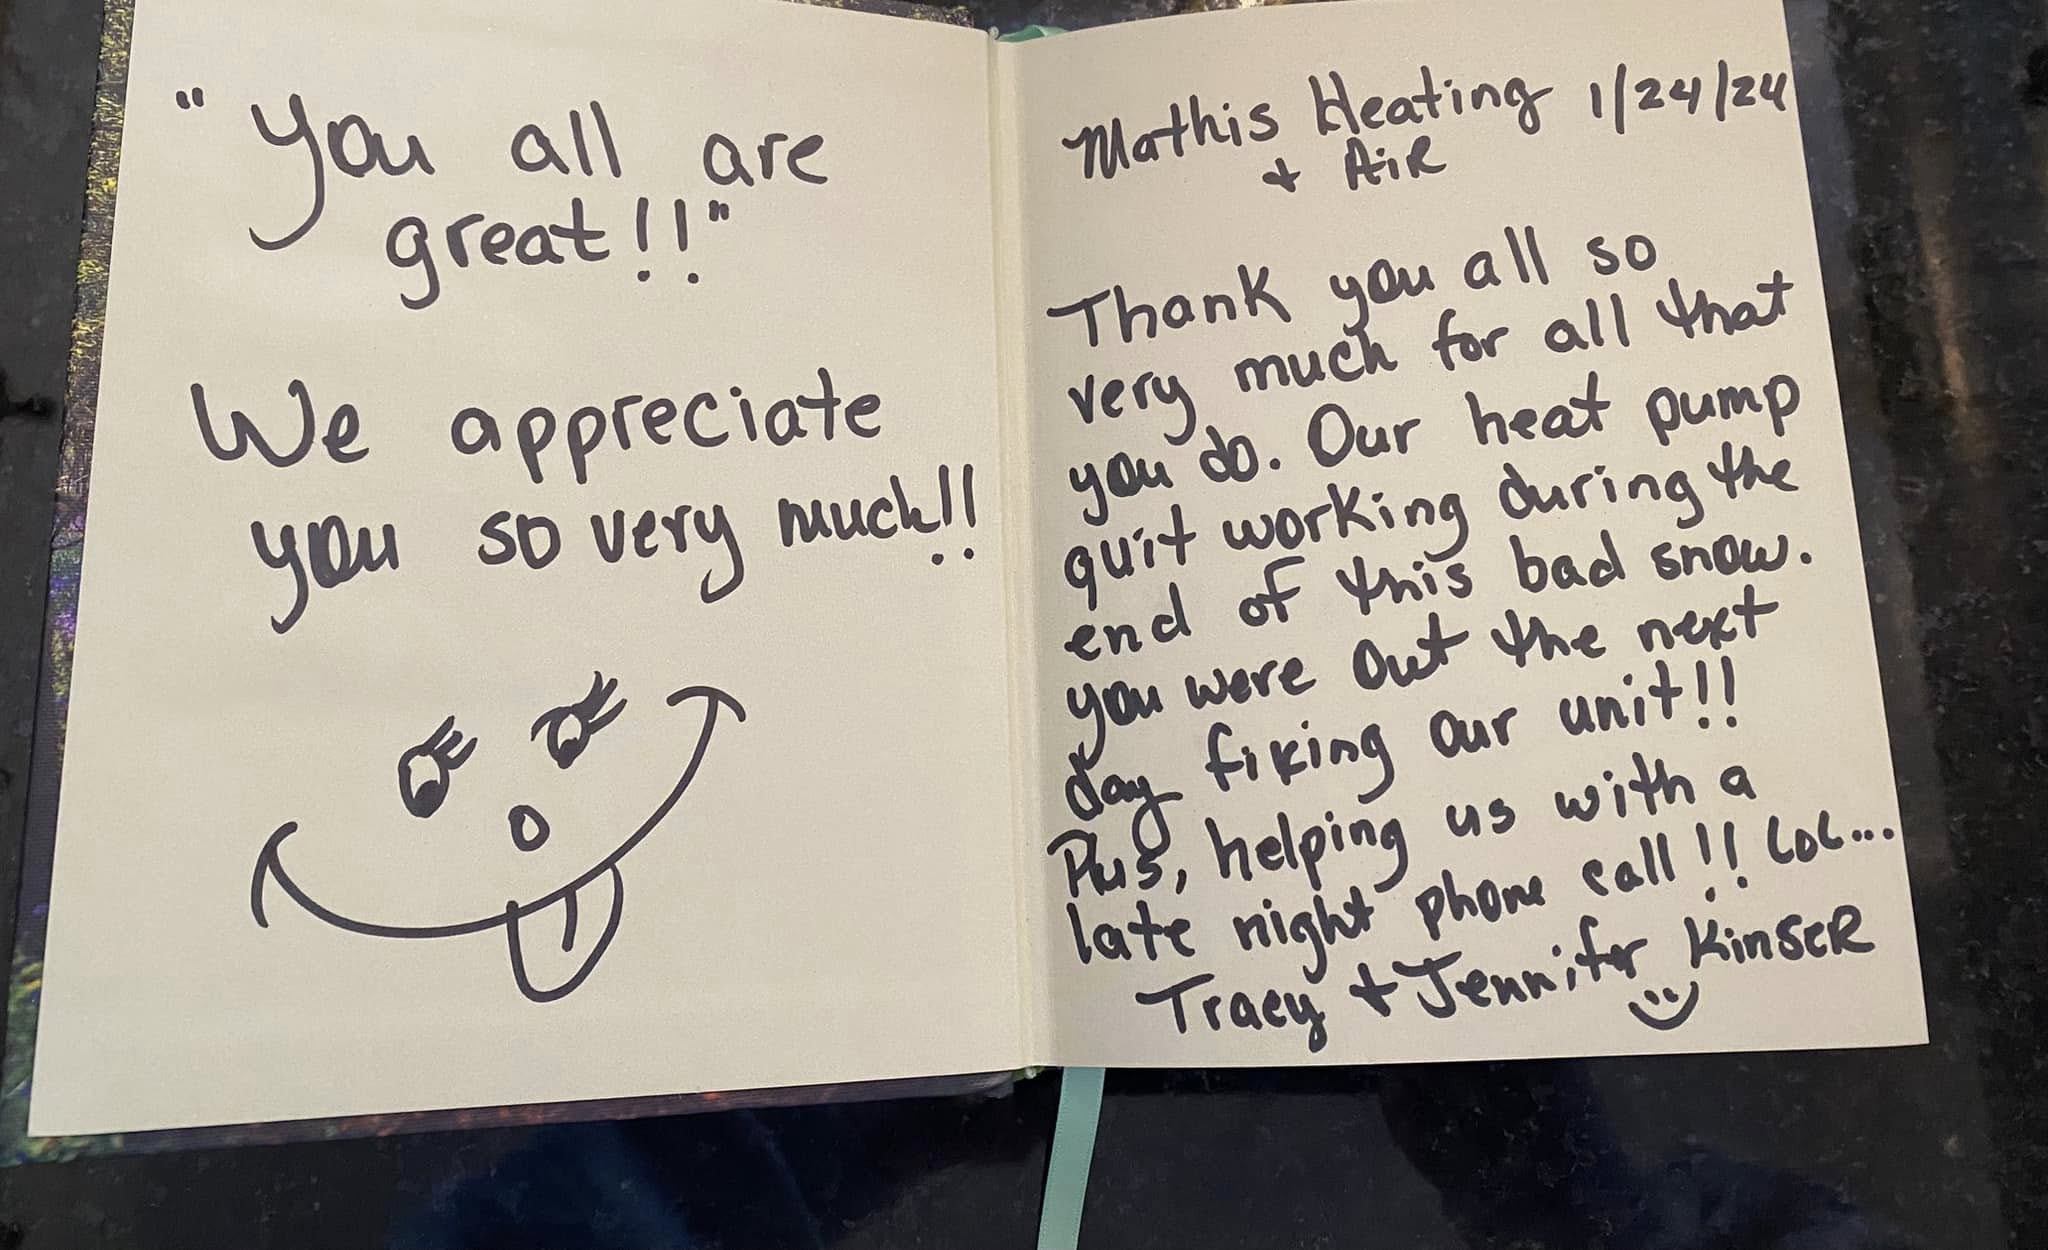 "You all are
great!!"
We appreciate
you so very much!!
Mathis Heating 1/24/24
+ AiR
Thank you all so
very much for all that
you do. Our heat pump
quit working during the
end of this bad snow.
you were out the next
day fixing our unit!!
Plus, helping us with a
late night phone call!! LOL...
Tracy + Jennifer KinseR